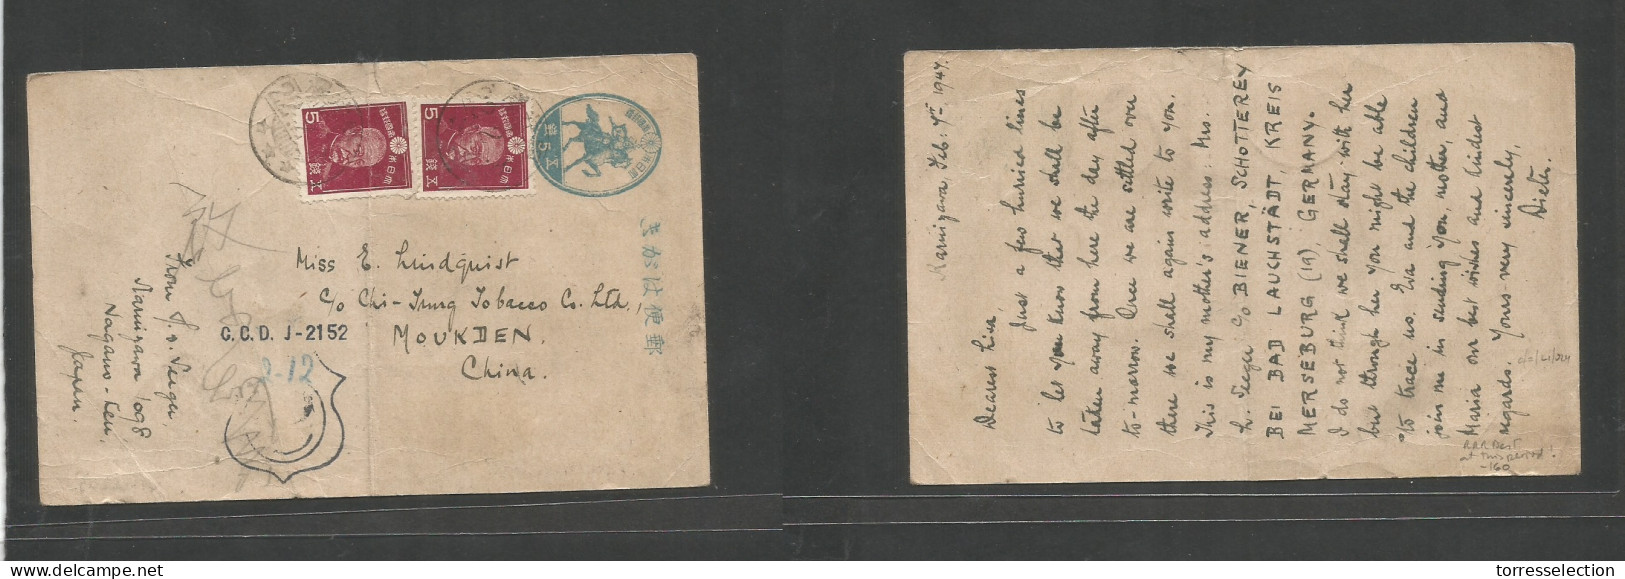 5
五銭
大日本帝国郵便
5
五銭
大日本帝国郵便
五銭
きがは便郵
Miss E. Lindquist
c/o Chi-Tung Tobacco Co. Ltd.,
MOUKDEN.
China.
C.C.D. J-2152
2-12
From H. v. Seeger,
Karuizawa 1098
Nagano-Ken,
Japan.
Karuizawa, Feb. 7th 1947.
Dearest Live,
Just a few hurried lines
to let you know that we shall be
taken away from here the day after
to-morrow. Once we are settled over
there we shall again write to you.
This is my mother's address: Mrs.
h. Seeger c/o BIENER, SCHOTTEREY
BEI BAD LAUCHSTÄDT, KREIS
MERSEBURG (19) GERMANY.
I do not think we shall stay with her
but through her you might be able
to trace us. Eva and the children
join me in sending you, mother, and
Maria our best wishes and kindest
regards. Yours very sincerely,
Dieter.
RRR Dest
at this period!
-160
delcampe.net
torresselection